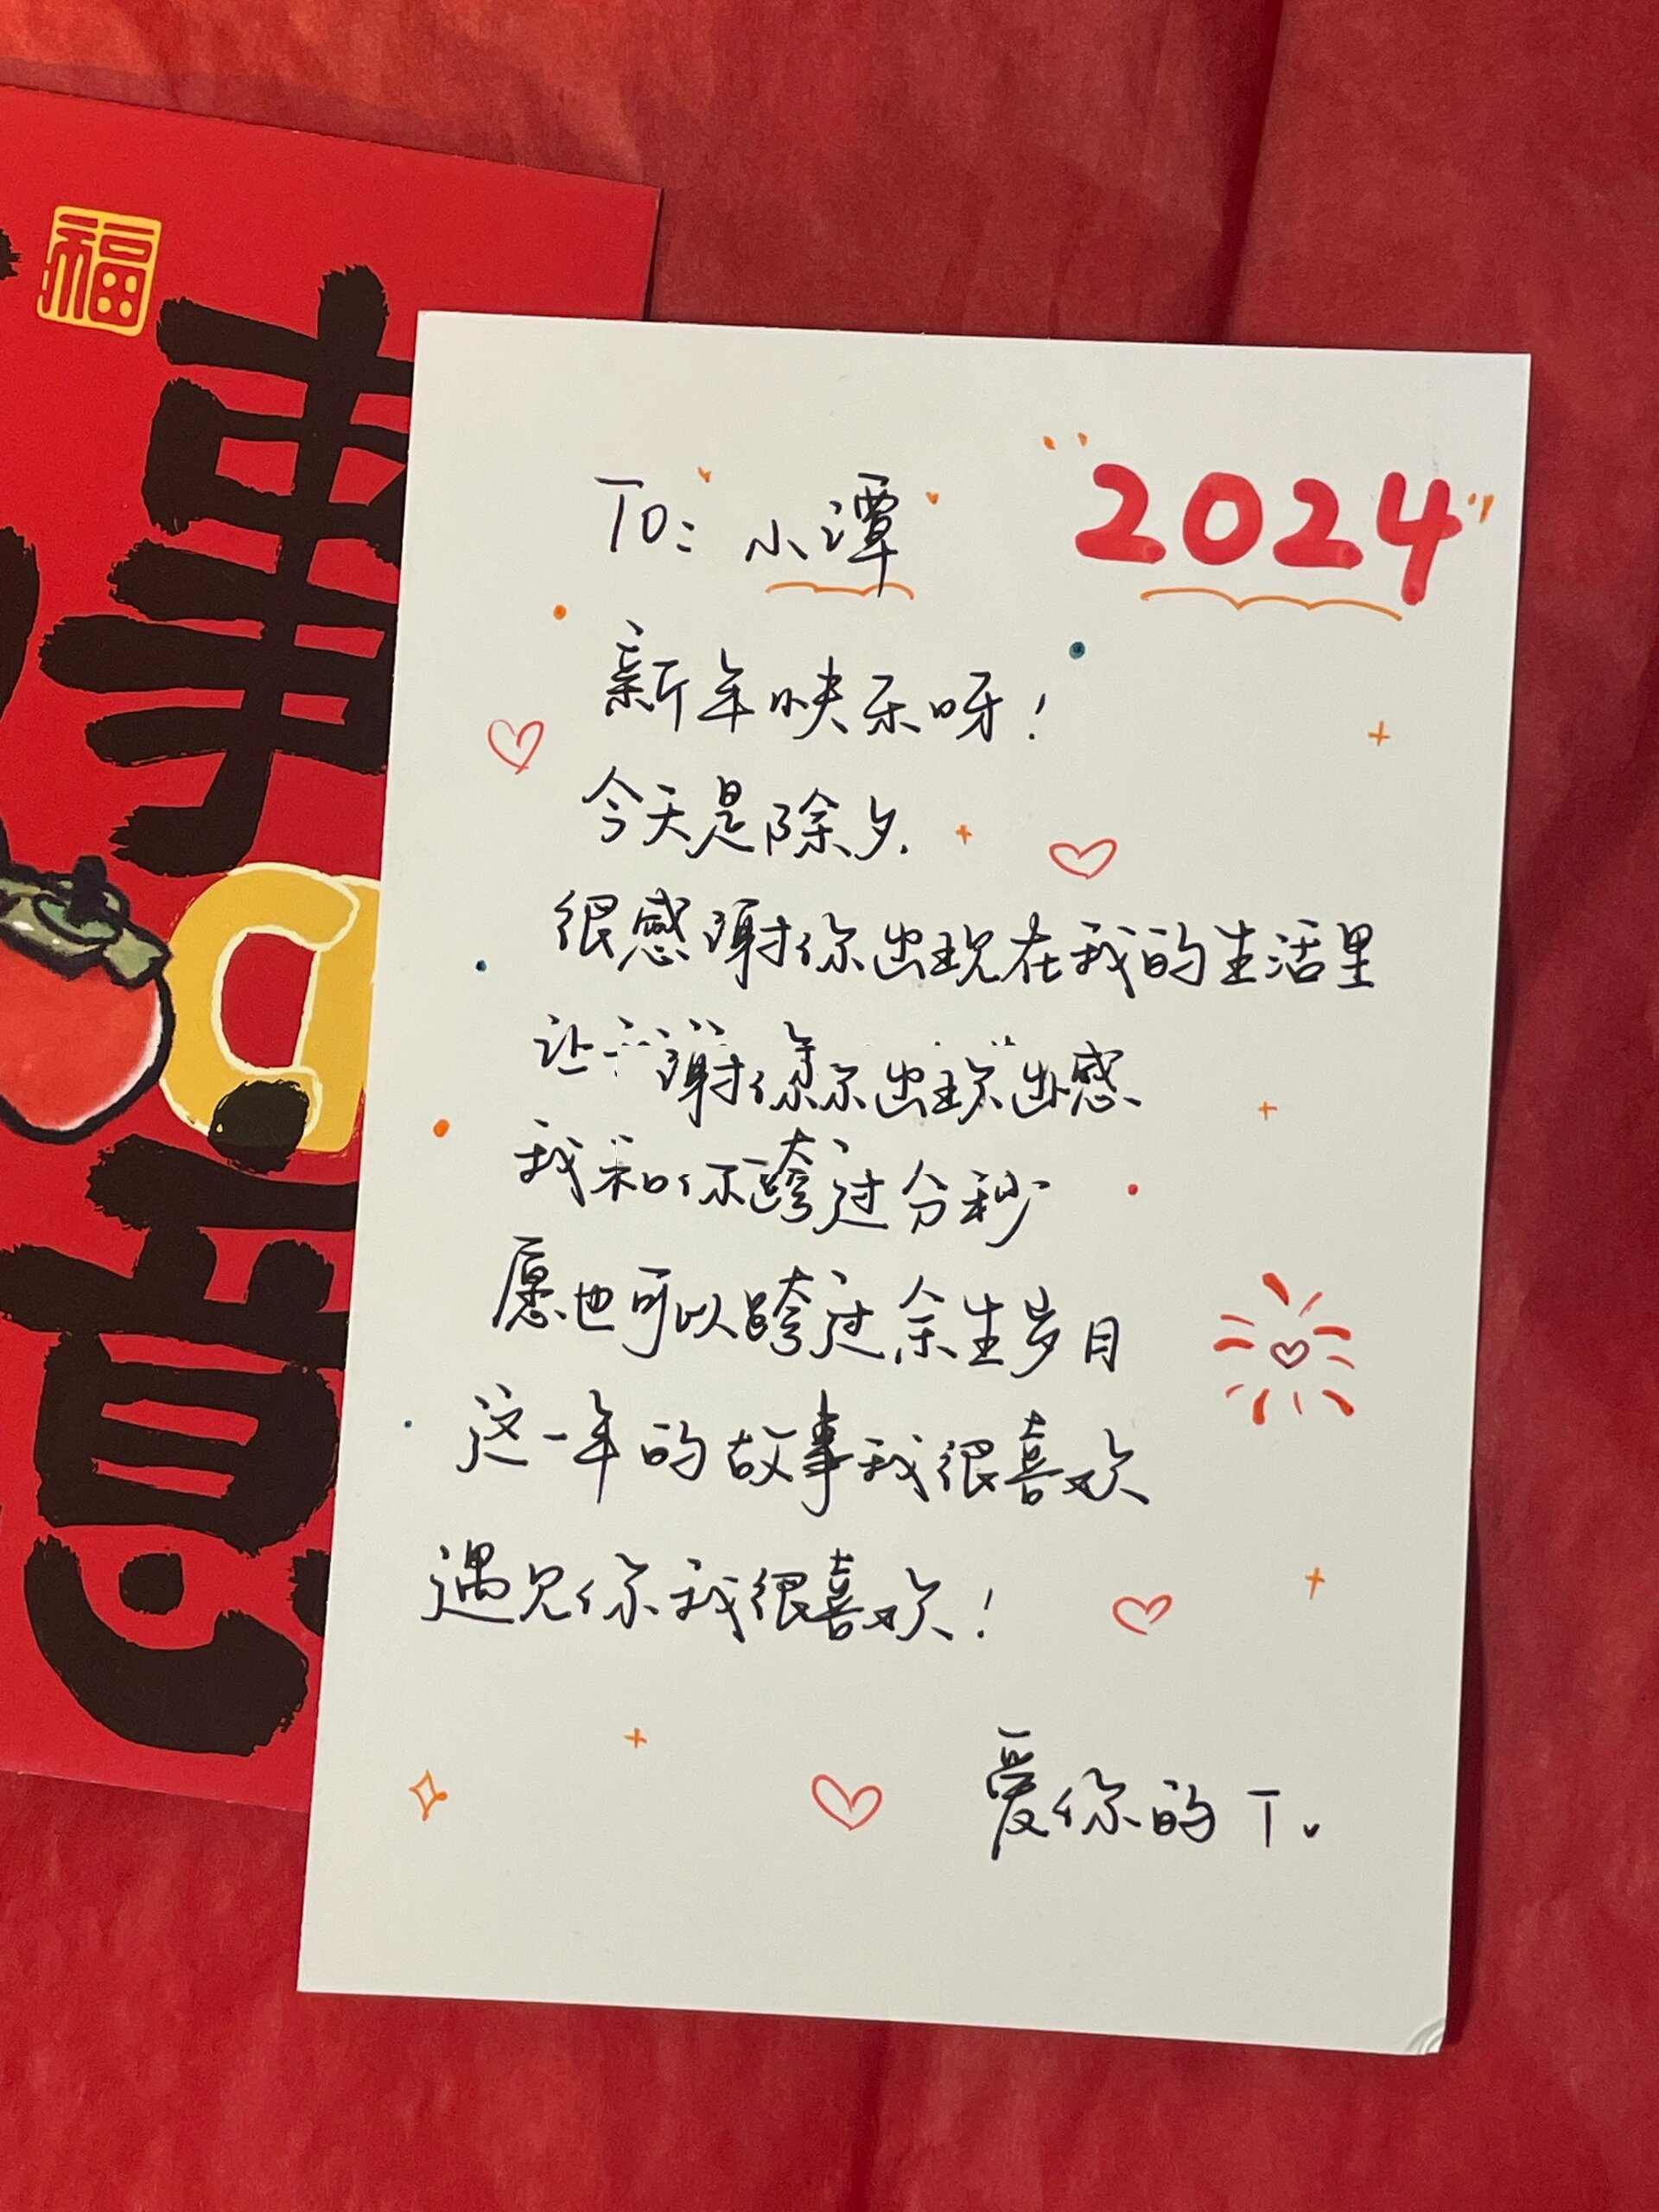 福
事
意
To: 小潭
2024
新年快乐呀!
今天是除夕.
很感谢你出现在我的生活里
让
我和你跨过分秒
愿也可以跨过余生岁月
这一年的故事我很喜欢
遇见你我很喜欢!
爱你的 T.